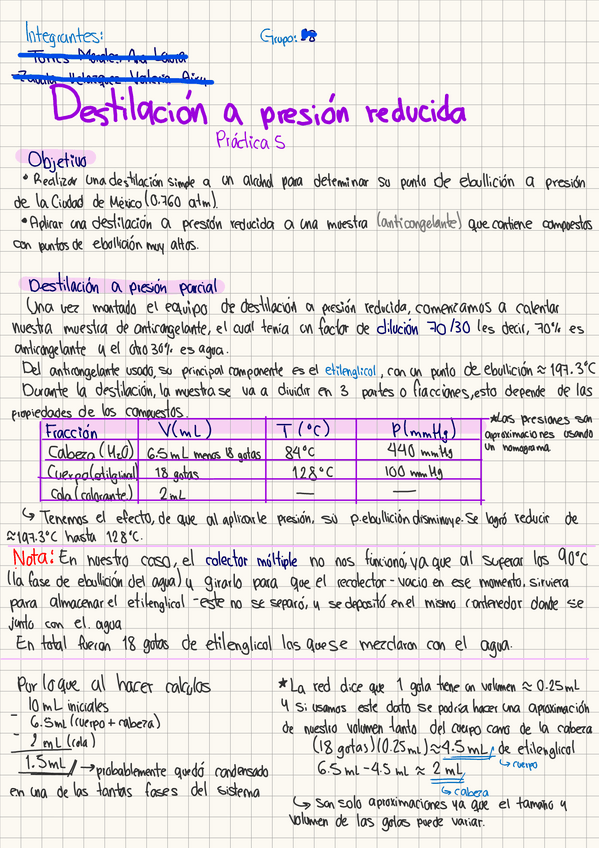 Integrantes:
Grupo:
Destilación a presión reducida
Práctica 5
Objetivo
• Realizar una destilación simple a un alcohol para determinar su punto de ebullición a presión
de la Ciudad de México (0.760 atm).
• Aplicar una destilación a presión reducida a una muestra (anticongelante) que contiene compuestos
con puntos de ebullición muy altos.
Destilación a presión parcial
Una vez montado el equipo de destilación a presión reducida, comenzamos a calentar
nuestra muestra de anticongelante, el cual tenía un factor de dilución 70/30 (es decir, 70% es
anticongelante y el otro 30% es agua.
Del anticongelante usado, su principal componente es el etilenglicol, con un punto de ebullición ≈ 197.3°C
Durante la destilación, la muestra se va a dividir en 3 partes o fracciones, esto depende de las
propiedades de los compuestos.
Fracción V(mL) T(°C) P(mmHg)
Cabeza (H₂O) 6.5mL menos 18 gotas 84°C 440 mmHg
Cuerpo(etilglinal) 18 gotas 128°C 100 mmHg
Cola (colorante) 2mL — —
*Las presiones son
aproximaciones usando
un nomograma
↳ Tenemos el efecto, de que al aplicarle presión, su p.ebullición disminuye. Se logró reducir de
≈197.3°C hasta 128°C.
Nota: En nuestro caso, el colector múltiple no nos funcionó, ya que al superar los 90°C
(la fase de ebullición del agua) y girarlo para que el recolector -vacío en ese momento, sirviera
para almacenar el etilenglicol -este no se separó, y se depositó en el mismo contenedor donde se
junto con el. agua
En total fueron 18 gotas de etilenglicol las que se mezclaron con el agua.
Por lo que al hacer calculos
10 mL iniciales
- 6.5mL (cuerpo + cabeza)
- 2 mL (cola)
1.5mL → probablemente quedó condensado
en una de las tantas fases del sistema
★ La red dice que 1 gota tiene un volumen ≈ 0.25mL
y si usamos este dato se podría hacer una aproximación
de nuestro volumen tanto del cuerpo como de la cabeza
(18 gotas)(0.25mL) ≈ 4.5 mL, de etilenglicol
↳ cuerpo
6.5 mL - 4.5 mL ≈ 2 mL
↳ cabeza
↳ Son solo aproximaciones ya que el tamaño y
volumen de las gotas puede variar.